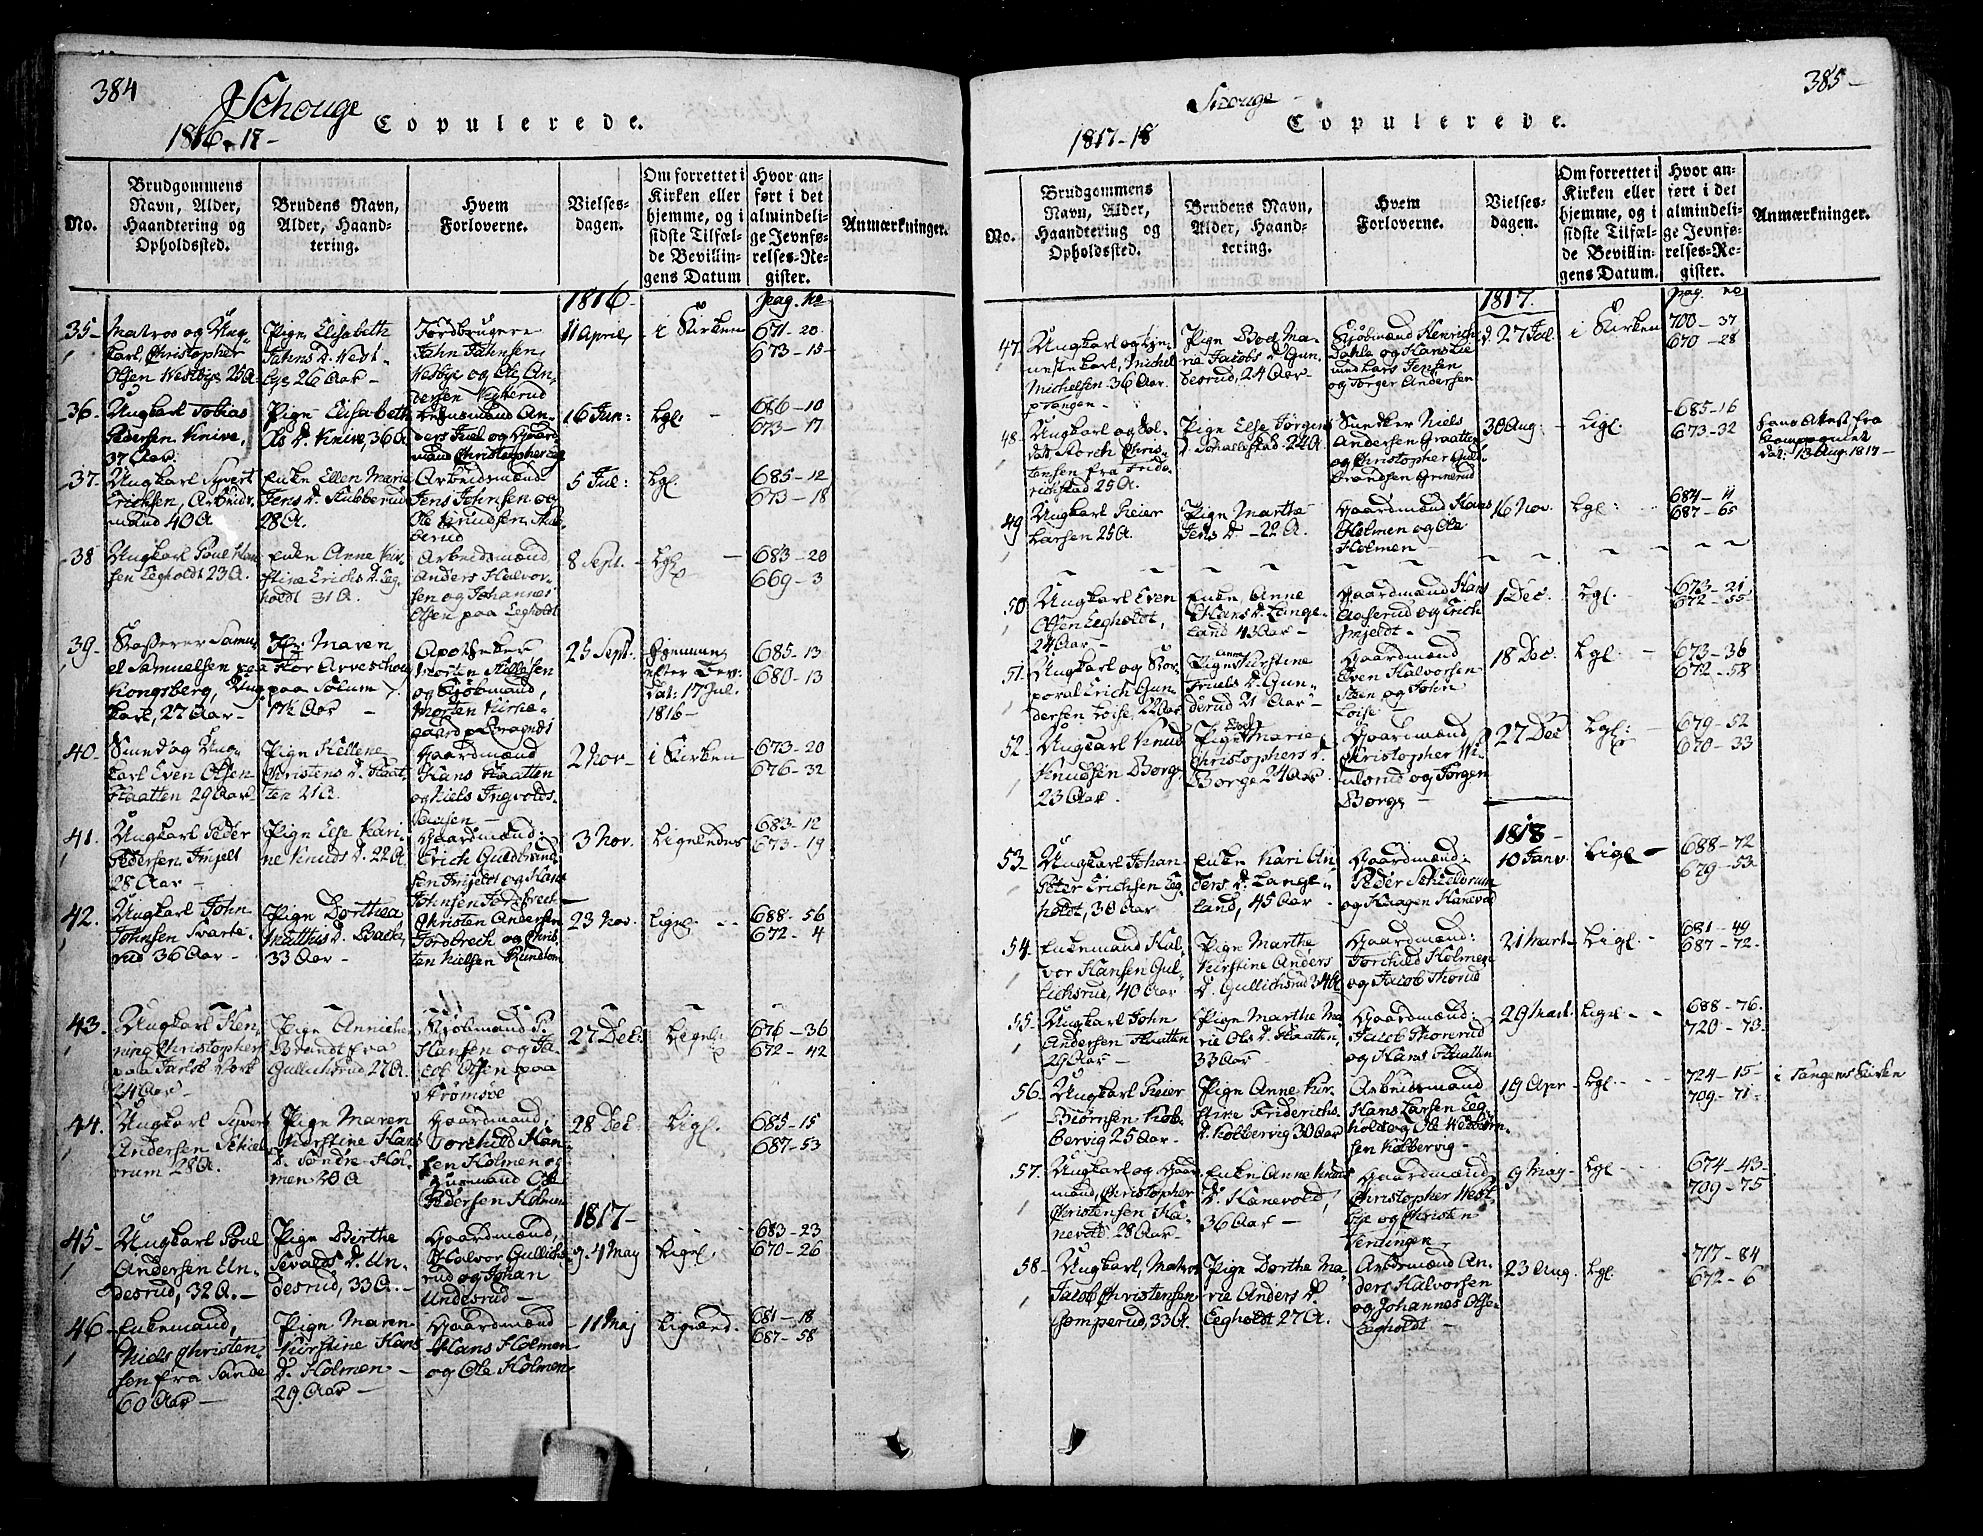 384
Schouge
Copulerede.
1816-17-
No.
Brudgommens
Navn, Alder,
Haandtering og
Opholdssted.
Brudens Navn,
Alder, Haand-
tering.
Hvem
Forloverne.
Vielses-
dagen.
Om forrettet i
Kirken eller
hjemme, og i
sidste Tilfæl-
de Bevillin-
gens Datum
Hvor an-
ført i det
almindeli-
ge Jevnfø-
relses-Re-
gister.
Anmærkninger.
1816-
pag. no
35-
Matros og Ung-
karl, Christopher
Olsen Westbye 25 A
Pige Elisabeth
Jahns D. West-
bye 26 Aar-
Jordbrugere
Jahn Jahnsen,
Wesbye og Ole An-
dersen
11 April,
i Kirken
671-20-
673-15-
36-
Ungkarl Tobias
Pedersen Knive,
37 Aar.
Pige Elisabeth
Ols D. Knive, 36 A
An-
ders Juel og Gaard-
mand Christopher
16 Jun:
Lgl. -
686-10
673-17
37-
Ungkarl Syvert
Erichsen, Arbeids-
mand 40 A
Enke Ellen Marie
Jens D. Stubberud
28 A.
Arbeidsmænd
Jens Johnsen og
Ole Knudsen Stub-
berud
5 Jul:
Lgl.
685-12
673-18
38
Ungkarl Poul Han-
sen Eegholdt 23 A.
Enke Anne Kir-
stine Erichs D. Eeg-
holdt 31 A.
Arbeidsmænd
Anders Halvor-
sen og Johannes
Olsen paa Eegholdt
8 Sept. -
Lgl -
683-20
669-3
39-
Samu-
el Samuelsen paa
Kongsberg, Ung-
karl, 27 Aar-
Jfr. Maren
paa Solum
17½ Aar -
Apotheker
Morten
og Kjøbmand,
Morten Kirke-
gaard p. Bragnes
25 Sept.
Hjemme
efter Bev:
Dat: 17 Jul.
1816-
685-13
680-13
40-
Smed og Ung-
karl Even Olsen
Haatten 29 Aar
Pige Hellene
Christens D. Haat-
ten 21 A.
Gaardmænd
Hans Haatten
og Niels Ingvolds-
2 Nov-
i Kirken
673-20
676-32
41.
Ungkarl Peder
Pedersen Imjelt
28 Aar -
Pige Else Kari-
ne Knuds D. 22 A
Gaardmænd:
Erich Guldbrand-
sen Imjeldt og Hans
Johnsen Jordbræk
3 Nov.
Ligeledes
683-12
673-19
42.
Ungkarl John
Johnsen Svarte-
rud 36 Aar -
Pige Dorthea
Matthis D. Bache
33 Aar -
Christen Andersen
Jordbrech og Chris-
ten Nielsen Rundtom
23 Nov.
Ligel. -
688-56
672-4
43.
Ungkarl Hen-
ning Christopher
paa Jarlsb. Værk
24 Aar -
Pige Anniche
Brandt fra
Gullichsrud 27 A.
Kjøbmænd P.
Hansen og Ja-
cob Olsen paa
Strømsøe
27 Dec:
Ligel:
676-36
672-42
44.
Ungkarl Syvert
Andersen Skiel-
drum 28 A.
Pige Maren
Kirstine Hans
D. Søndre Hol-
men 20 A
Gaardmænd:
Torchild Han-
sen Holmen og
Huusmand Ole
Pedersen Holmen
28 Dec:
Ligl.
685-15
687-53
1817-
45-
Ungkarl Poul
Andersen Un-
desrud, 32 A. -
Pige Birthe
Sevalds D. Un-
desrud, 33 A. -
Gaardmænd,
Halvor Gullichs-
rud og Johan
Undesrud -
d. 4 May
Ligel.
683-23
670-26
46-
Enkemand,
Niels Christen-
sen fra Sande
60 Aar -
Pige Maren
Kirstine Hans
D. Holmen -
29 Aar -
Gaardmænd
Hans Holmen
og Ole Holmen
- 11 Maj
Ligeled.
681-18
687-58
385-
Scouge -
Copulerede.
1817-18
No.
Brudgommens
Navn, Alder,
Haandtering og
Opholdssted.
Brudens Navn,
Alder, Haand-
tering.
Hvem
Forloverne.
Vielses-
dagen.
Om forrettet i
Kirken eller
hjemme, og i
sidste Tilfæl-
de Bevillin-
gens Datum.
Hvor an-
ført i det
almindeli-
ge Jevnfø-
relses-Re-
gister.
Anmærkninger.
1817.
pag. no
47.
Ungkarl og Tje-
nestekarl, Michel
Michelsen 36 Aar
p Tangen -
Pige Boel Ma-
rie Jacobs D. Gun-
desrud, 24 Aar -
Kjøbmænd Henrich
Dahle og Hans
Lars Jensen
og Torger Andersen
d. 27 Jul.
i Kirken
700-37
670-28
48-
Ungkarl og Sol-
dat Storch Chris-
tensen fra Fride-
richstad 25 A.
Pige Else Jørgens
D. 24 A.
Snedker Niels
Andersen Graatten
og Christopher Guld-
brandsen Grinerud
30 Aug: -
Ligl.
685-16
673-32
hans Attest fra
Compagniet
Dat: 13 Aug. 1817-
49
Ungkarl Peier
Larsen 25 A.
Pige Marthe
Jens D. - 22 A.
Gaardmænd Hans
Holmen og Ole
Holmen -
16 Nov.
Lgl:
684-11
687-65
50-
Ungkarl Even
Olsen Eegholdt,
24 Aar -
Enke, Anne
Hans D. Lange-
land 43 Aar -
Gaardmænd Hans
Aaserud og Erich
Imjeldt -
1 Dec.
Lgl.
673-21
672-55
51-
Ungkarl og Kor-
poral Erich Gun-
dersen Loise, 22 Aar
Pige Anne Kirstine
Truels D. Gun-
derud 21 Aar -
Gaardmænd
Even Halvorsen
Steen og John
Loise -
18 Dec.
Lgl: -
673-36
672-58
52-
Ungkarl Knud
Knudsen Borge
23 Aar.
Pige Marie
Christophers D.
Borge 24 Aar
Gaardmænd
Christopher
og Jørgen
Borge -
27 Dec
Lgl:
679-52
670-33
1818-
53-
Ungkarl Johan
Peter Erichsen Eeg-
holdt, 30 Aar
Enke Kari An-
ders D. Lange-
land, 45 Aar -
Gaardmænd:
Peder Schieldrum
og Haagen Hanevold
10 Janv.
Ligl -
688-72
679-53
54-
Enkemand Hal-
vor Hansen Gul-
lichsrud, 40 Aar
Pige Marthe
Kirstine Anders
D. Gullichsrud 34 A
Gaardmænd:
Torchild Holmen
og Jacob Thorud
21 Mart-
Ligl. -
681-49
687-72-
55-
Ungkarl John
Andersen Haatten
29 Aar -
Pige Marthe Ma-
rie Ols D. Haatten,
33 Aar -
Gaardmænd:
Jacob Thorerud
og Hans Haatten
29 Mart.
Ligel - -
688-76.
720-73-
56-
Ungkarl Peier
Biørnsen Kob-
bervig 25 Aar -
Pige Anne Kir-
stine Friderichs
D. Kobbervig 30 Aar
Arbeidsmænd
Hans Larsen Eeg-
holdt og Ole Webiørn-
sen Kobbervig -
19 Apr -
Lgl. -
724-15-
709-71-
i Tangens Kirke
57-
Ungkarl og Gaard-
mand, Christopher
Christensen Ha-
nevold 28 Aar -
Enke Anne
D. Hanevold,
36 Aar -
Gaardmænd
Christopher West-
bye og Christen
Ventingen -
9 May -
Lgl
674-43-
709-75
58-
Ungkarl, Matros
Jacob Christensen
Gomperud, 33 A.
Pige Dorthe Ma-
rie Anders D.
Eegholdt 27 A.
Arbeidsmænd An-
ders Halvorsen
og Johannes Olsen
Eegholdt -
23 Aug.
Lgl.
717-84
672-6